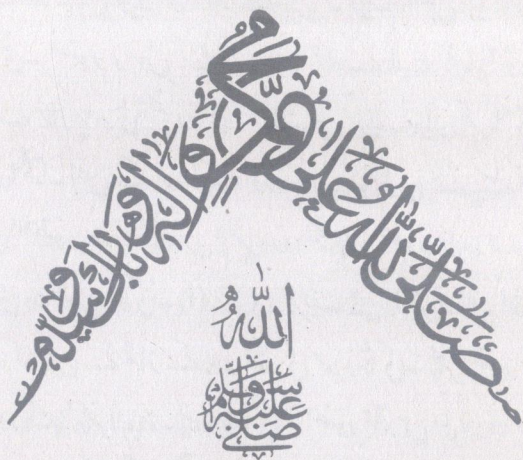 صلى الله على محمد وآله وبارك وسلم
الله
صلى الله عليه وسلم